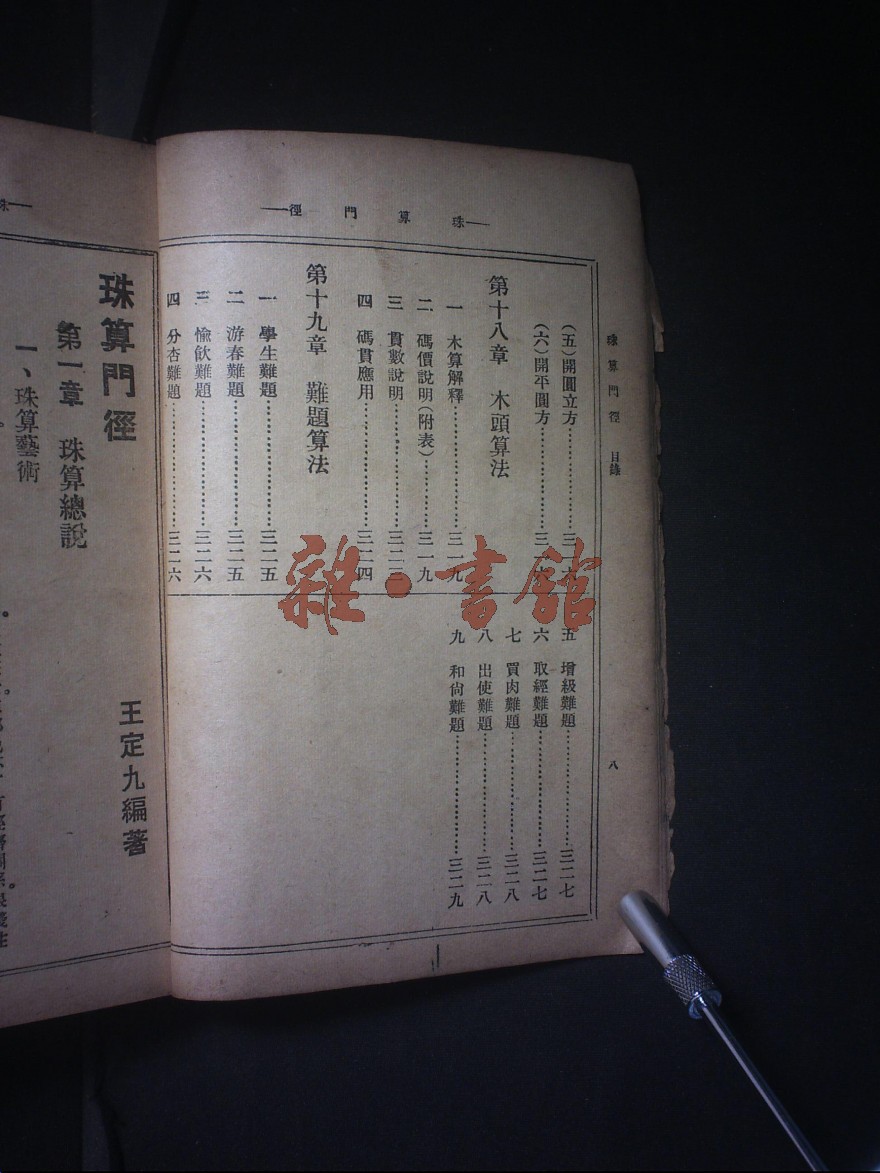 珠算門徑
珠算門徑 目錄
八
(五)開圓立方
(六)開平圓方
第十八章 木頭算法
一 木算解釋 三一九
二 碼價說明(附表) 三一九
三 貫數說明
四 碼貫應用 三二四
第十九章 難題算法
一 學生難題 三二五
二 游春難題 三二五
三 愉飲難題 三二六
四 分杏難題 三二六
五 增級難題 三二七
六 取經難題 三二七
七 買肉難題 三二八
八 出使難題 三二八
九 和尙難題 三二九
珠算門徑
王定九編著
第一章 珠算總說
一、珠算藝術
雜·書館